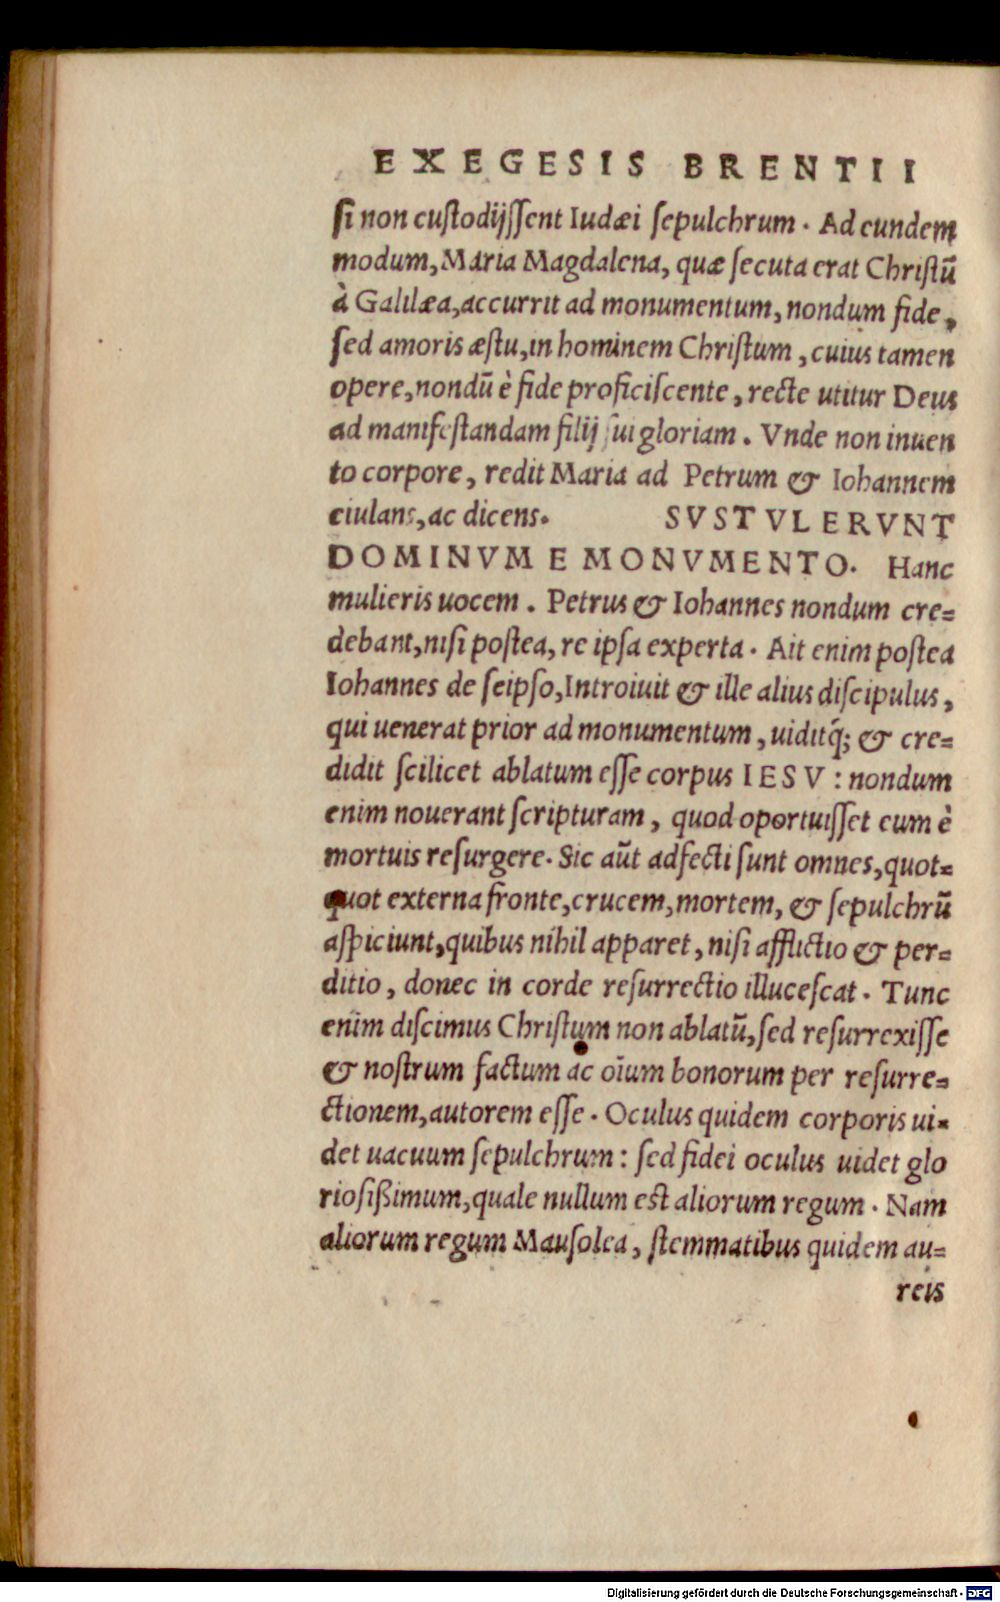 EXEGESIS BRENTII
ſi non cuſtodijſſent Iudæi ſepulchrum. Ad eundem
modum, Maria Magdalena, quæ ſecuta erat Chriſtū
à Galilæa, accurrit ad monumentum, nondum fide,
ſed amoris æſtu, in hominem Chriſtum, cuius tamen
opere, nondū è fide proficiſcente, recte utitur Deus
ad manifeſtandam filij ſui gloriam. Vnde non inuen
to corpore, redit Maria ad Petrum & Iohannem
eiulans, ac dicens. SVSTVLERVNT
DOMINVM E MONVMENTO. Hanc
mulieris uocem. Petrus & Iohannes nondum cre=
debant, niſi poſtea, re ipſa experta. Ait enim poſtea
Iohannes de ſeipſo, Introiuit & ille alius diſcipulus,
qui uenerat prior ad monumentum, uiditq́; & cre=
didit ſcilicet ablatum eſſe corpus IESV: nondum
enim nouerant ſcripturam, quod oportuiſſet eum è
mortuis reſurgere. Sic aūt adfecti ſunt omnes, quot=
quot externa fronte, crucem, mortem, & ſepulchrū
aſpiciunt, quibus nihil apparet, niſi afflictio & per=
ditio, donec in corde reſurrectio illuceſcat. Tunc
enim diſcimus Chriſtum non ablatū, ſed reſurrexiſſe
& noſtrum factum ac oīum bonorum per reſurre=
ctionem, autorem eſſe. Oculus quidem corporis ui=
det uacuum ſepulchrum: ſed fidei oculus uidet glo
rioſißimum, quale nullum est aliorum regum. Nam
aliorum regum Mauſolea, ſtemmatibus quidem au=
reis
Digitalisierung gefördert durch die Deutsche Forschungsgemeinschaft - DFG